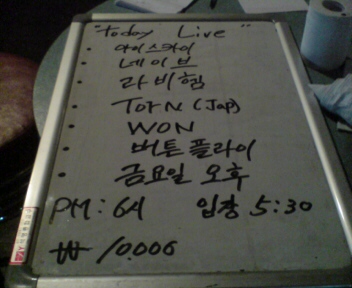 "today Live"
아이스카이
네이브
라비헴
TorN (Jap)
WON
버튼플라이
금요일 오후
PM: 6시 입장 5:30
₩ 10.000